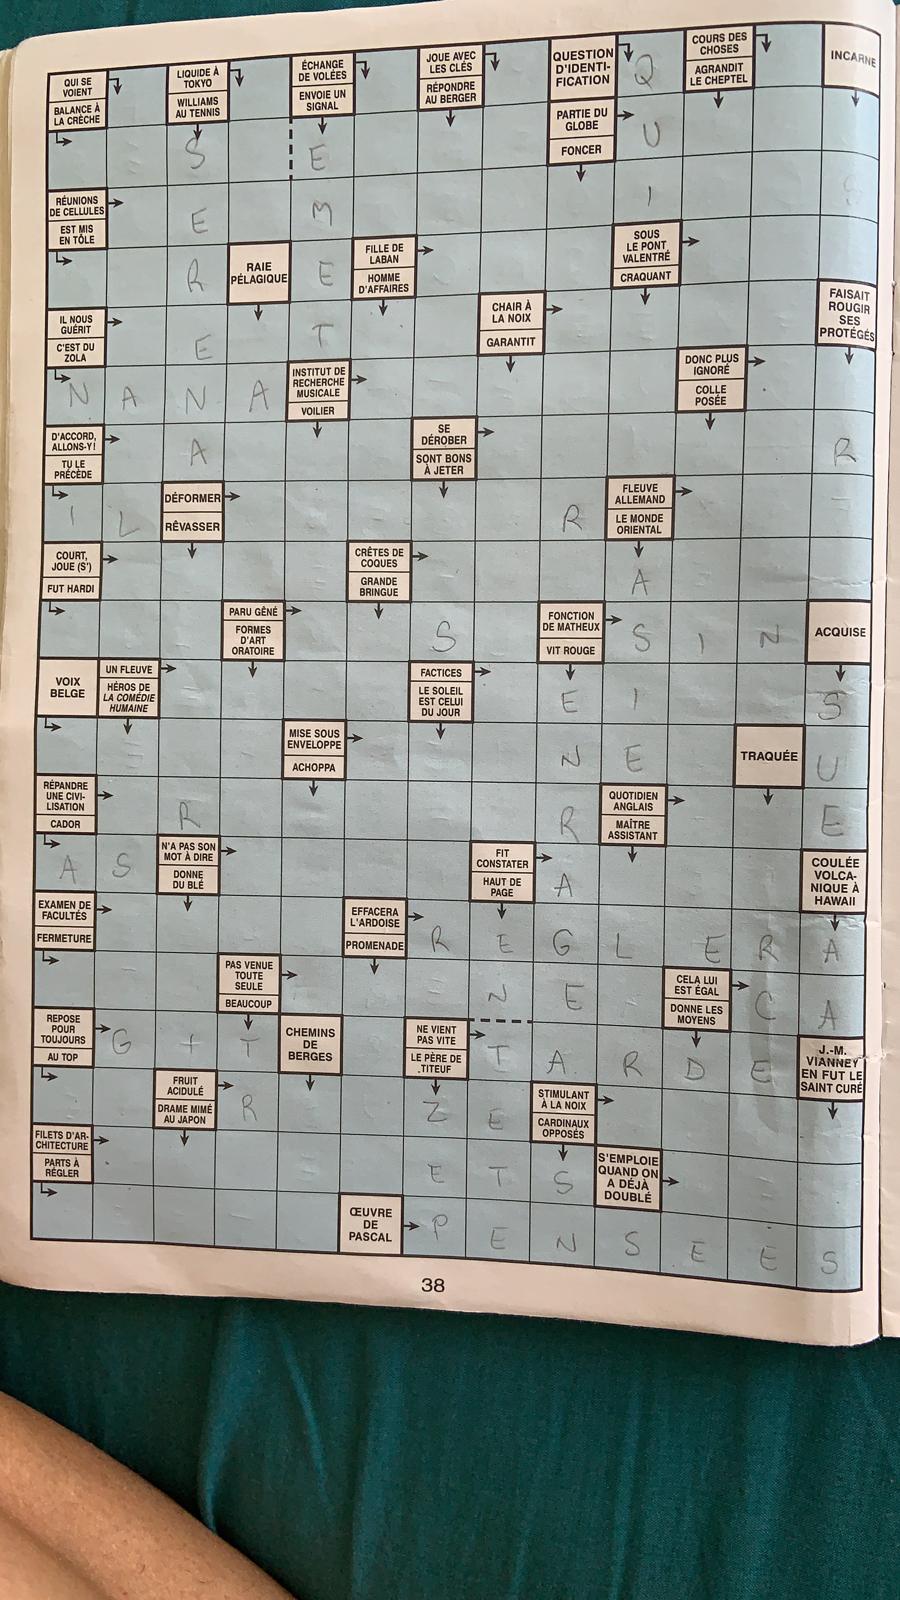 QUI SE
VOIENT
BALANCE À
LA CRÈCHE
LIQUIDE À
TOKYO
WILLIAMS
AU TENNIS
ÉCHANGE
DE VOLÉES
ENVOIE UN
SIGNAL
JOUE AVEC
LES CLÉS
RÉPONDRE
AU BERGER
QUESTION
D'IDENTI-
FICATION
Q
COURS DES
CHOSES
AGRANDIT
LE CHEPTEL
INCARNE
S
E
PARTIE DU
GLOBE
FONCER
U
RÉUNIONS
DE CELLULES
EST MIS
EN TÔLE
E
M
I
S
R
RAIE
PÉLAGIQUE
E
FILLE DE
LABAN
HOMME
D'AFFAIRES
SOUS
LE PONT
VALENTRÉ
CRAQUANT
IL NOUS
GUÉRIT
C'EST DU
ZOLA
E
T
CHAIR À
LA NOIX
GARANTIT
FAISAIT
ROUGIR
SES
PROTÉGÉS
N A N A
INSTITUT DE
RECHERCHE
MUSICALE
VOILIER
DONC PLUS
IGNORÉ
COLLE
POSÉE
D'ACCORD,
ALLONS-Y!
TU LE
PRÉCÈDE
A
SE
DÉROBER
SONT BONS
À JETER
R
I L
DÉFORMER
RÊVASSER
R
FLEUVE
ALLEMAND
LE MONDE
ORIENTAL
COURT,
JOUE (S')
FUT HARDI
CRÊTES DE
COQUES
GRANDE
BRINGUE
A
PARU GÊNÉ
FORMES
D'ART
ORATOIRE
S
FONCTION
DE MATHEUX
VIT ROUGE
S I N
ACQUISE
VOIX
BELGE
UN FLEUVE
HÉROS DE
LA COMÉDIE
HUMAINE
FACTICES
LE SOLEIL
EST CELUI
DU JOUR
E I
S
MISE SOUS
ENVELOPPE
ACHOPPA
N E
TRAQUÉE
U
RÉPANDRE
UNE CIVI-
LISATION
CADOR
R
R
QUOTIDIEN
ANGLAIS
MAÎTRE
ASSISTANT
E
A S
N'A PAS SON
MOT À DIRE
DONNE
DU BLÉ
FIT
CONSTATER
HAUT DE
PAGE
A
COULÉE
VOLCA-
NIQUE À
HAWAII
EXAMEN DE
FACULTÉS
FERMETURE
EFFACERA
L'ARDOISE
PROMENADE
R E G L E R A
PAS VENUE
TOUTE
SEULE
BEAUCOUP
N E
CELA LUI
EST ÉGAL
DONNE LES
MOYENS
C A
REPOSE
POUR
TOUJOURS
AU TOP
G I T
CHEMINS
DE
BERGES
NE VIENT
PAS VITE
LE PÈRE DE
TITEUF
T A R D E
J.-M.
VIANNEY
EN FUT LE
SAINT CURÉ
FRUIT
ACIDULÉ
DRAME MIMÉ
AU JAPON
R
Z E
STIMULANT
À LA NOIX
CARDINAUX
OPPOSÉS
FILETS D'AR-
CHITECTURE
PARTS À
RÉGLER
E T S
S'EMPLOIE
QUAND ON
A DÉJÀ
DOUBLÉ
ŒUVRE
DE
PASCAL
P E N S E E S
38